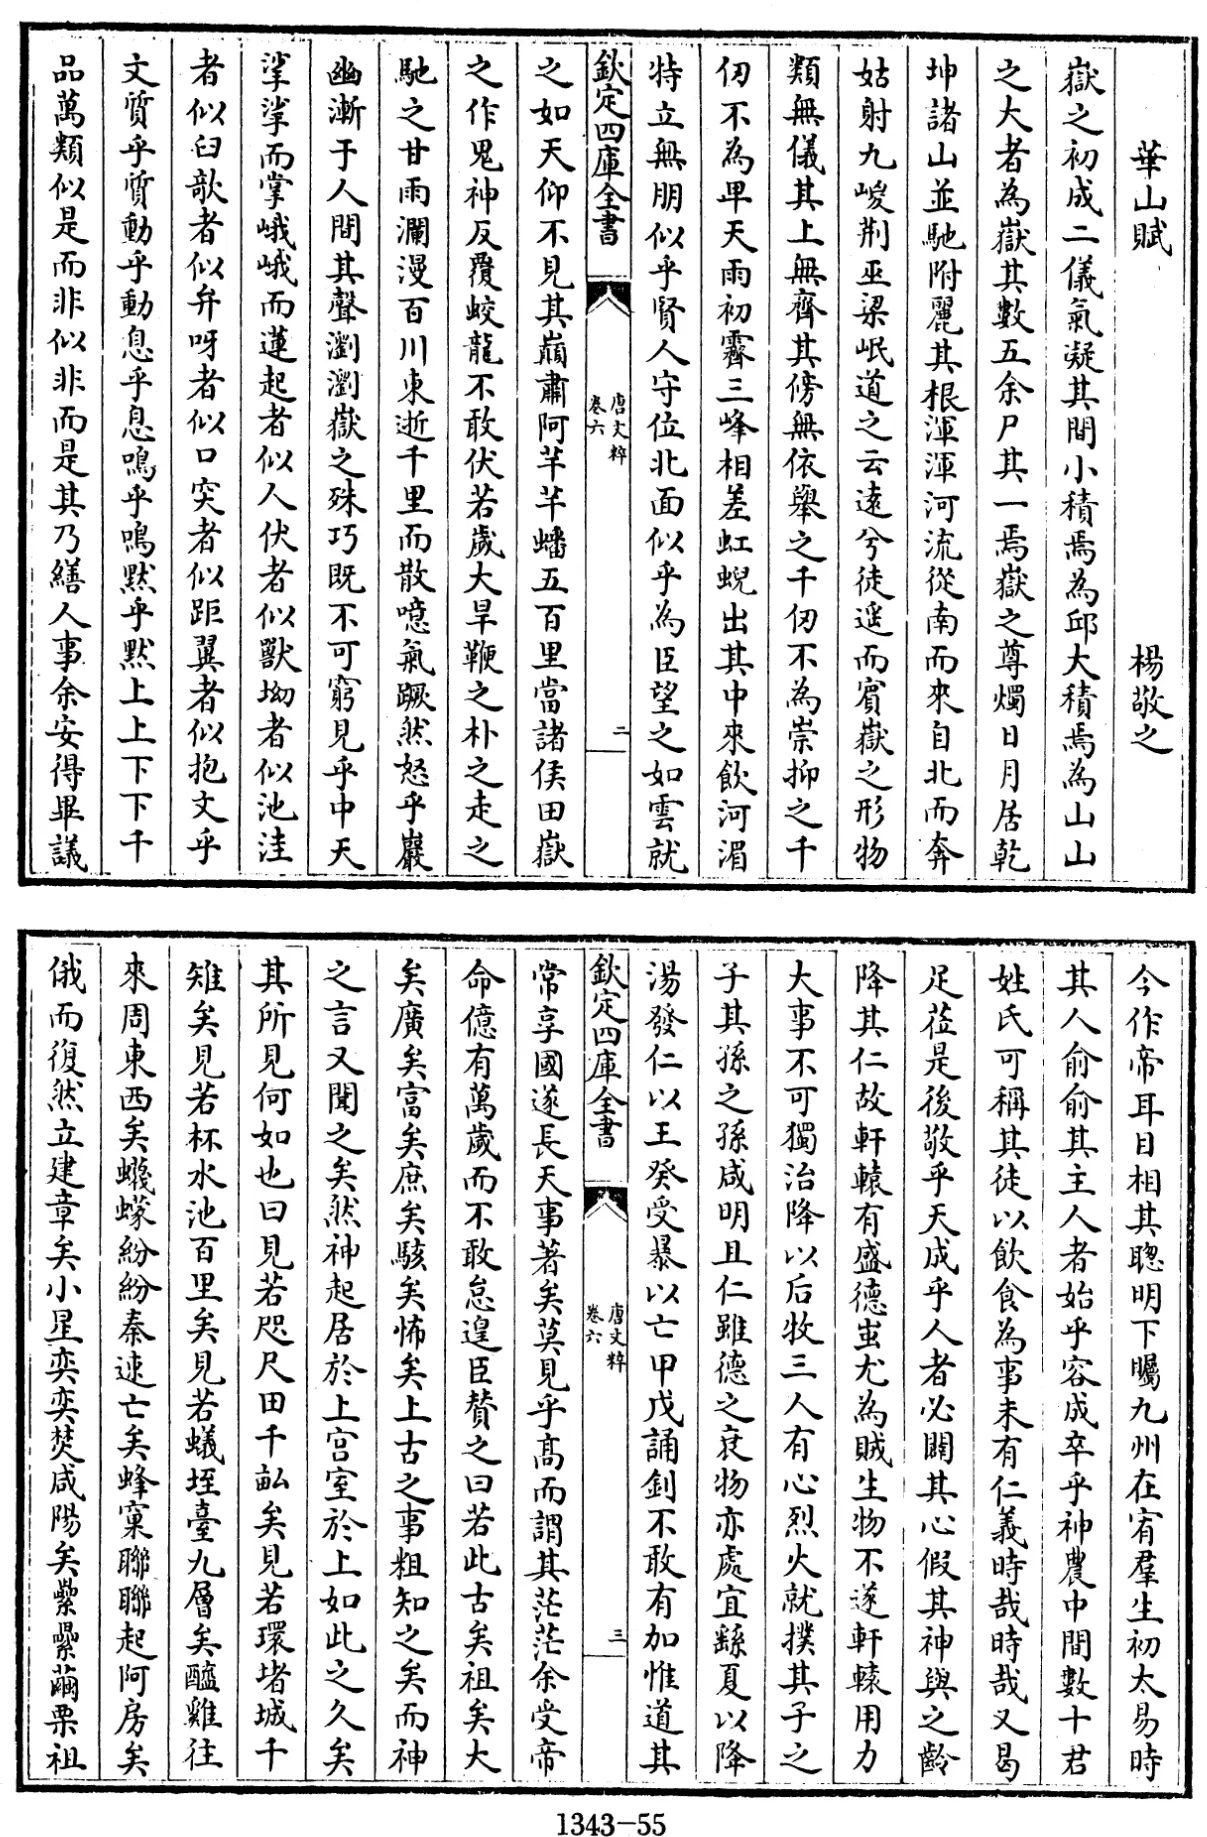 華山賦 楊敬之
嶽之初成二儀氣凝其間小積焉為邱大積焉為山山
之大者為嶽其數五余尸其一焉嶽之尊燭日月居乾
坤諸山並馳附麗其根渾渾河流從南而來自北而奔
姑射九嵕荆巫梁岷道之云遠兮徒遥而賓嶽之形物
類無儀其上無齊其傍無依舉之千仞不為崇抑之千
仞不為卑天雨初霽三峰相差虹蜺出其中來飲河湄
特立無朋似乎賢人守位北面似乎為臣望之如雲就
欽定四庫全書 唐文粹 卷六 二
之如天仰不見其巔肅阿芊芊蟠五百里當諸侯田嶽
之作鬼神反覆蛟龍不敢伏若歲大旱鞭之朴之走之
馳之甘雨瀾漫百川東逝千里而散噫氣蹶然怒乎巖
幽漸于人間其聲瀏瀏嶽之殊巧既不可窮見乎中天
挲挲而掌峨峨而蓮起者似人伏者似獸坳者似池洼
者似臼欹者似弁呀者似口突者似距翼者似抱文乎
文質乎質動乎動息乎息鳴乎鳴黙乎黙上上下下千
品萬類似是而非似非而是其乃繕人事余安得畢議
今作帝耳目相其聰明下矚九州在宥羣生初太易時
其人俞俞其主人者始乎容成卒乎神農中間數十君
姓氏可稱其徒以飲食為事未有仁義時哉時哉又曷
足莅是後敬乎天成乎人者必闢其心假其神與之齡
降其仁故軒轅有盛德蚩尤為賊生物不遂軒轅用力
大事不可獨治降以后牧三人有心烈火就撲其子之
子其孫之孫咸明且仁雖德之衰物亦處宜繇夏以降
湯發仁以王癸受暴以亡甲戊誦釗不敢有加惟道其
欽定四庫全書 唐文粹 卷六 三
常享國遂長天事著矣莫見乎髙而謂其茫茫余受帝
命億有萬歲而不敢怠遑臣贊之曰若此古矣祖矣大
矣廣矣富矣庶矣駭矣怖矣上古之事粗知之矣而神
之言又聞之矣然神起居於上宫室於上如此之久矣
其所見何如也曰見若咫尺田千畝矣見若環堵城千
雉矣見若杯水池百里矣見若蟻垤臺九層矣醯雞往
來周東西矣蠛蠓紛紛秦速亡矣蜂窠聯聯起阿房矣
俄而復然立建章矣小星奕奕焚咸陽矣纍纍繭栗祖
1343-55